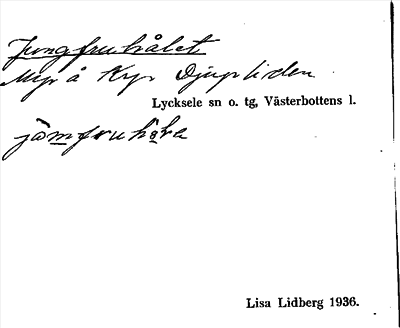 Jungfruhålet
Myr å Kyr Djupliden
Lycksele sn o. tg, Västerbottens l.
jòmfruhòla
Lisa Lidberg 1936.